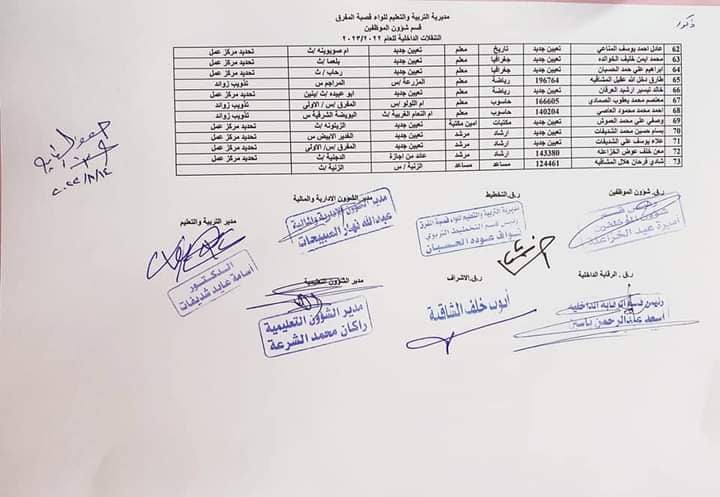 ذكور
مديرية التربية والتعليم للواء قصبة المفرق
قسم شؤون الموظفين
التنقلات الداخلية للعام ٢٠٢٣/٢٠٢٢
62 عادل احمد يوسف المناعي تعيين جديد تاريخ معلم تعيين جديد ام صويوينه /ث تحديد مركز عمل
63 محمد ايمن خليف الخوالده تعيين جديد جغرافيا معلم تعيين جديد بلعما /ث تحديد مركز عمل
64 ابراهيم علي حمد الحسبان تعيين جديد جغرافيا معلم تعيين جديد رحاب /ث تحديد مركز عمل
65 طارق دخل الله عقيل المشاقبه 196764 رياضة معلم المزرعة /س المراجم س تذويب زوائد
66 خالد تيسير ارشيد العرقان تعيين جديد رياضة معلم تعيين جديد ابو عبيده /ث تحديد مركز عمل
67 معتصم محمد يعقوب الصمادي 166605 حاسوب معلم ام اللولو /س المفرق /س الاولى تذويب زوائد
68 احمد محمد محمود العاصي 140204 حاسوب معلم ام النعام الغربية /ث البويضة الشرقية س تذويب زوائد
69 وصفي علي محمد العموش تعيين جديد مكتبات امين مكتبة تعيين جديد الزيتونه /ث تحديد مركز عمل
70 بسام حسين محمد الشديفات تعيين جديد ارشاد مرشد تعيين جديد الغدير الابيض س تحديد مركز عمل
71 علاء يوسف علي الشديفات تعيين جديد ارشاد مرشد تعيين جديد المفرق /س/ الاولى تحديد مركز عمل
72 معن خلف عوض الخزاعله 143380 ارشاد مرشد عائد من اجازة الدجنية /ث تحديد مركز عمل
73 شادي فرحان هلال المشاقبه 124461 مساعد مساعد الزنية /س الزنية /ث
ر.ق. شؤون الموظفين
ر.ق.التخطيط
مدير الشؤون الادارية والمالية
مدير التربية والتعليم
رئيس قسم
شؤون الموظفين
اميرة عيد الخزاعلة
مديرية التربية والتعليم للواء قصبة المفرق
رئيس قسم التخطيط التربوي
نواف عوده الحسبان
مدير الشؤون الادارية والمالية
عبدالله نهار العبيصات
الدكتور
أسامة عايد شديفات
ر.ق. الرقابة الداخلية
ر.ق.الاشراف
مدير الشؤون التعليمية
رئيس قسم الرقابة الداخلية
اسعد عبدالرحمن ياسين
أيوب خلف الشاقبة
مدير الشؤون التعليمية
راكان محمد الشرعة